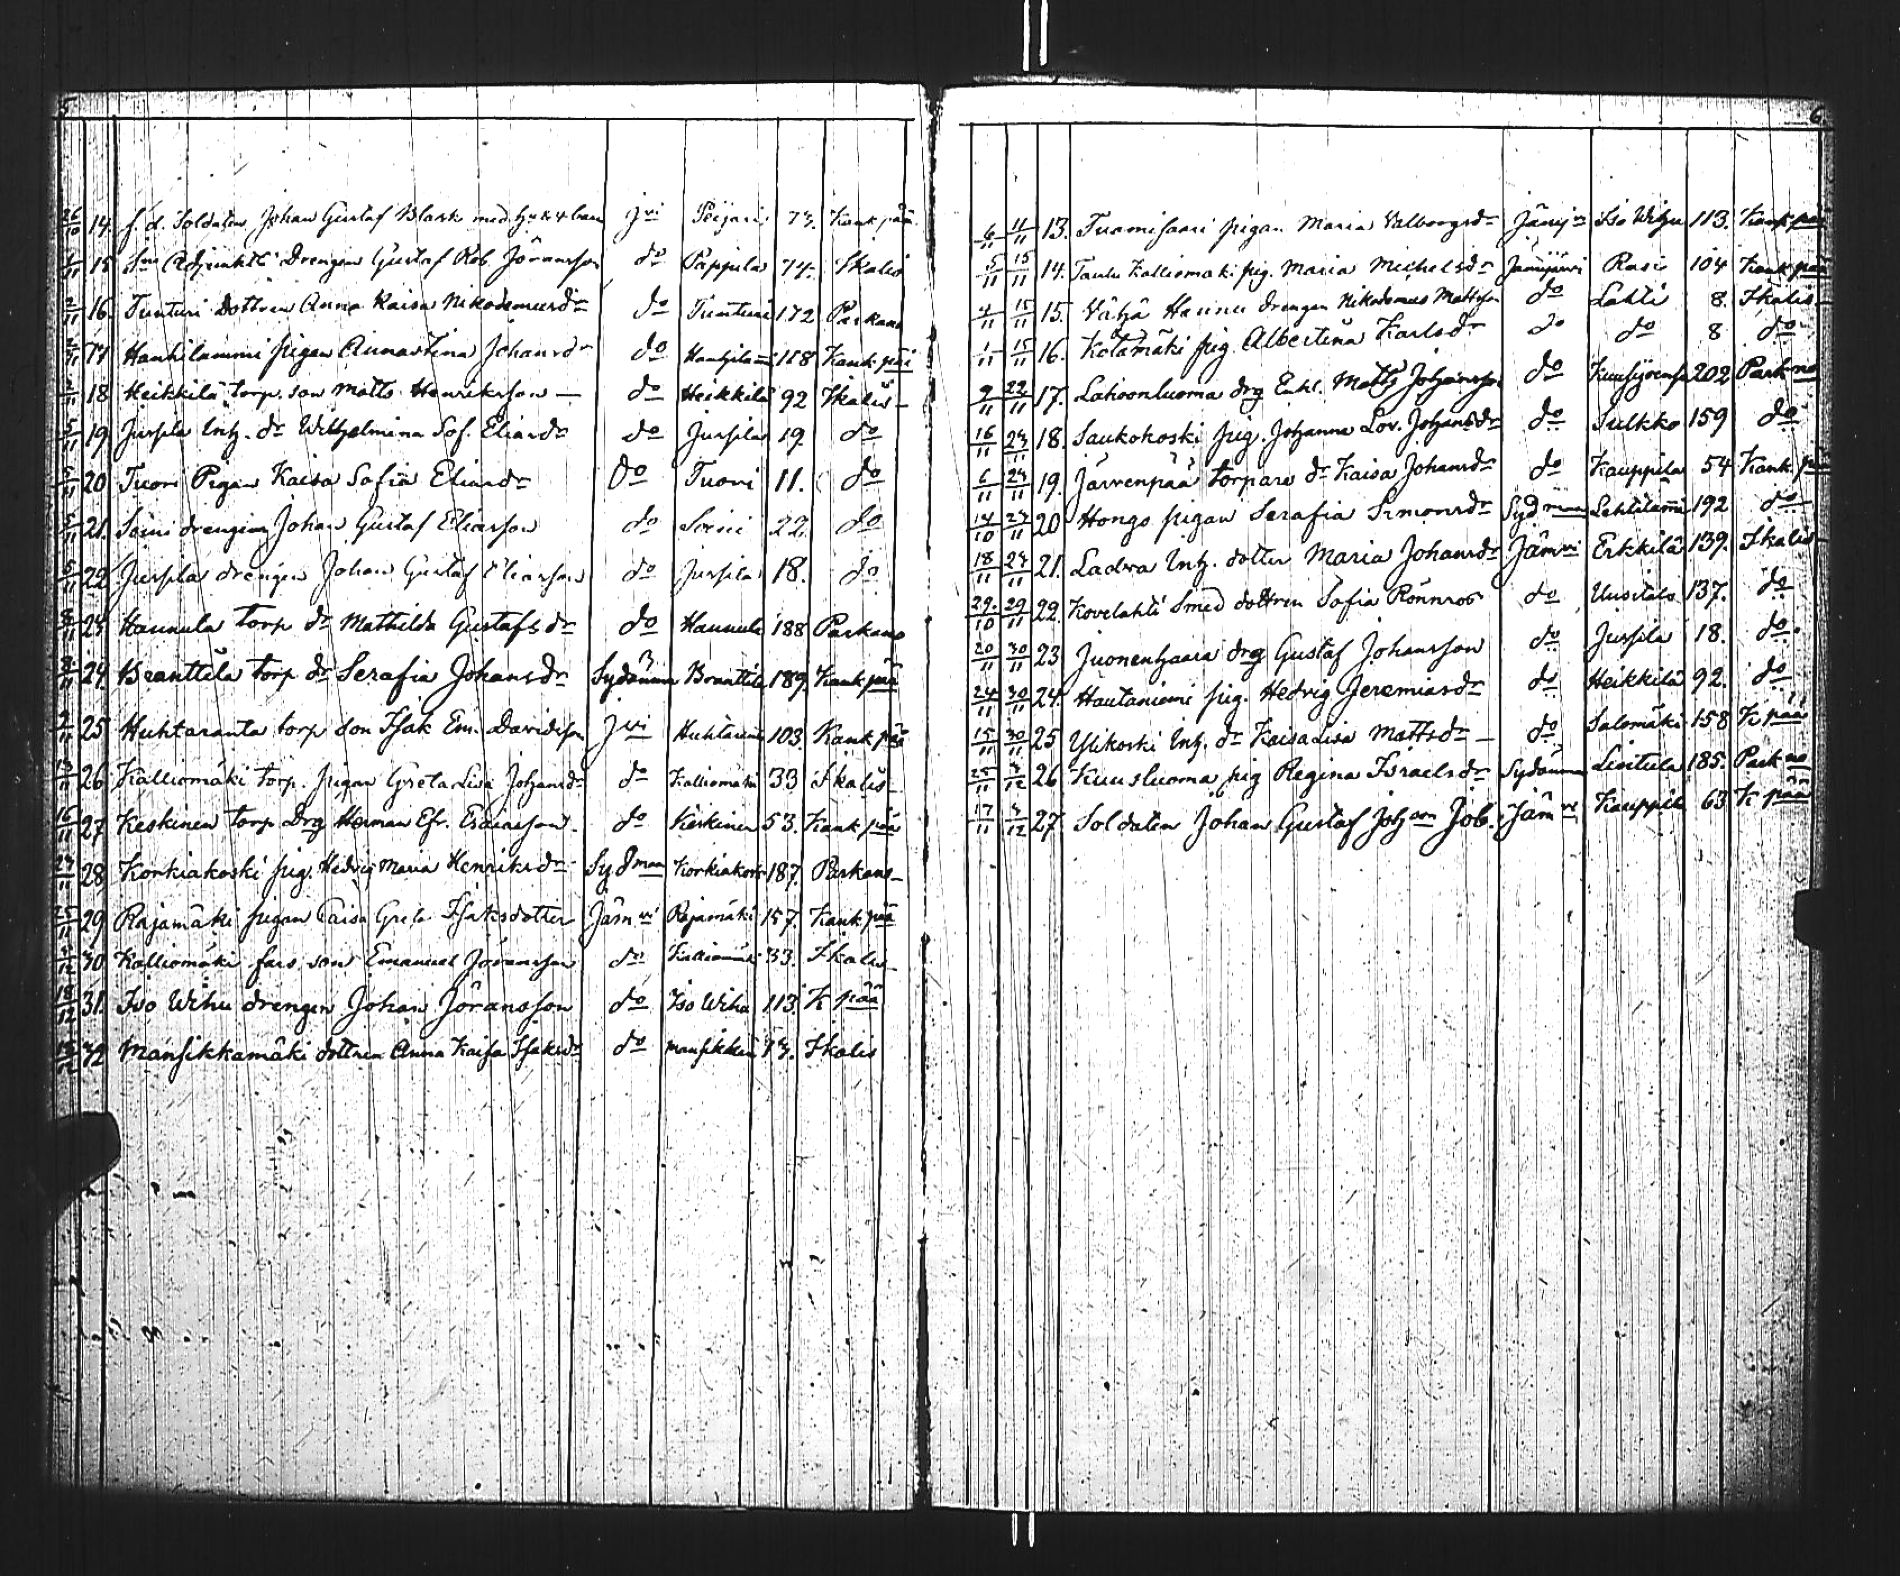 5.
26/10 14. f. d. Soldaten Johan Gustaf Blask med hu & 4 barn Jvi Peijari 73. Kankpää
1/11 15 Adjunkts Drengen Gustaf Rob. Jöransson do Pappila 74. Ikalis
2/11 16. Tunturi dottren Anna Kaisa Nikodemusdr do Tunturi 172 Parkano
2/11 17 Hanhilammi pigan Annastina Johansdr do Hanhilami 118 Kankpää
2/11 18 Heikkilä torp. son Matts Henriksson — do Heikkilä 92 Ikalis —
5/11 19. Juspla Inh. dr Wilhelmina Sof. Eliasdr do Juspla 19. do
5/11 20 Tuori Pigan Kaisa Sofia Eliasdr Do Tuori 11. do
5/11 21. Soini drengen Johan Gustaf Eliasson do Soini 22. do
5/11 22 Juspla drengen Johan Gustaf Eliasson do Juspila 18. do
8/11 23 Hannula torp dr Mathilda Gustafsdr do Hannula 188 Parkano
8/11 24. Branttila torp dr Serafia Johansdr Sydänma Branttila 189. Kankpää
2/11 25 Huhtaranta torp son Isak Em. Davidsson Jvi Huhtaran 103. Kankpää
13/11 26 Kalliomäki torp. pigan Greta Lisa Johansdr do Kalliomäki 33 Ikalis —
16/11 27 Keskinen torp Drg Herman Efr. Esaiasson. do Keskinen 53. Kankpää
24/11 28 Korkiakoski pig. Hedvig Maria Henriksdr Sydmaa Korkiakosk 187. Parkano —
25/11 29 Rajamäki pigan Caisa Greta Isaksdotter Jämvi Rajamäki 157. Kankpää
30 Kalliomäki fars son Emanuel Jöransson do Kalliomäki 33. Ikalis —
18/12 31. Iso Wihu drengen Johan Jöransson do Iso Wihu 113. K pää
32 Mansikkamäki dottren Anna Kaisa Isaksdr do Mansikkam 13. Ikalis
6.
6/11 11/11 13. Tuomisaari pigan Maria Valborgsdr Jämijvi Iso Wihu 113. Kankpää
5/11 15/11 14. Taulu Kalliomäki pig. Maria Michelsdr Jämijärvi Rasi 104 Kankpää
4/11 15/11 15. Vähä Hannu drengen Nikodemus Mattsson do Lahti 8. Ikalis —
1/11 15/11 16. Kotamäki pig. Albertina Karlsdr do do 8 do
9/11 22/11 17. Lahoonluoma drg Enkl. Matts Johansson do 202 Parkno
16/11 23/11 18. Saukokoski pig. Johanna Lov. Johansdr do Sulkko 159 do
6/11 24/11 19. Järvenpää torpare dr Kaisa Johansdr do Kauppila 54 Kankpää
14/10 24/11 20 Hongo pigan Serafia Simonsdr Sydmaa Lehtilami 192 do
18/11 24/11 21. Ladva Inh. dotter Maria Johansdr Jämvi Erkkilä 139. Ikalis —
29/10 29/11 22. Kovelahti Smed dottren Sofia Rönnros do Uusitalo 137. do
20/11 30/11 23 Juonenhaara drg Gustaf Johansson do Juspila 18. do
24/11 30/11 24. Hautaniemi pig. Hedvig Jeremiasdr do Heikkilä 92. do
15/11 30/11 25 Ylikoski Inh. dr Kaisa Lisa Mattsdr — do Salomäki 158 K pää
25/11 3/12 26 Kuusluoma pig Regina Israelsdr Sydänmaa Liitula 185. Parkno
17/11 3/12 27 Soldaten Johan Gustaf Johson Job. Jämvi Kauppila 63 K pää